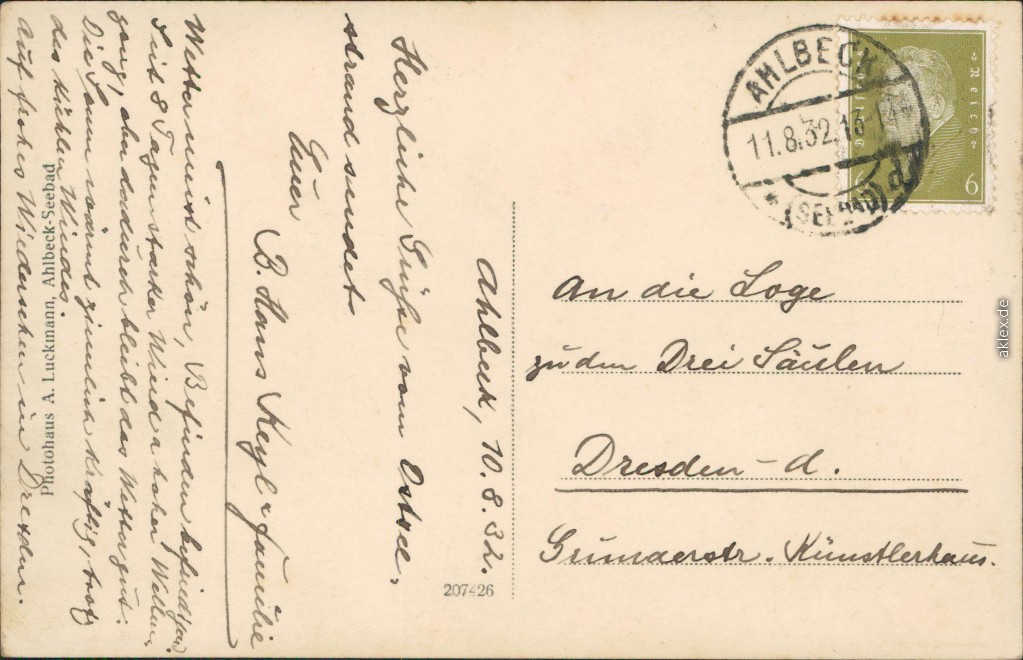 Ahlbeck, 10.8.32.
Herzliche Grüße vom Ostsee-
strand sendet
Euer
B. Hans Keyl & Familie
Wetter meist schön, Befinden
Seit 8 Tagen starker Wind & hoher
gang, aber dadurch bleibt das Wetter gut.
Die Sonne wärmt ziemlich kräftig, trotz
des kühlen Windes.
Auf frohes Wiedersehen in Dresden.
Photohaus A. Luckmann, Ahlbeck-Seebad
207426
AHLBECK
11.8.32.13-14
(SEEBAD) d
Reich
6
An die Loge
zu den Drei Säulen
Dresden-A.
Grunaerstr. Künstlerhaus.
aklex.de